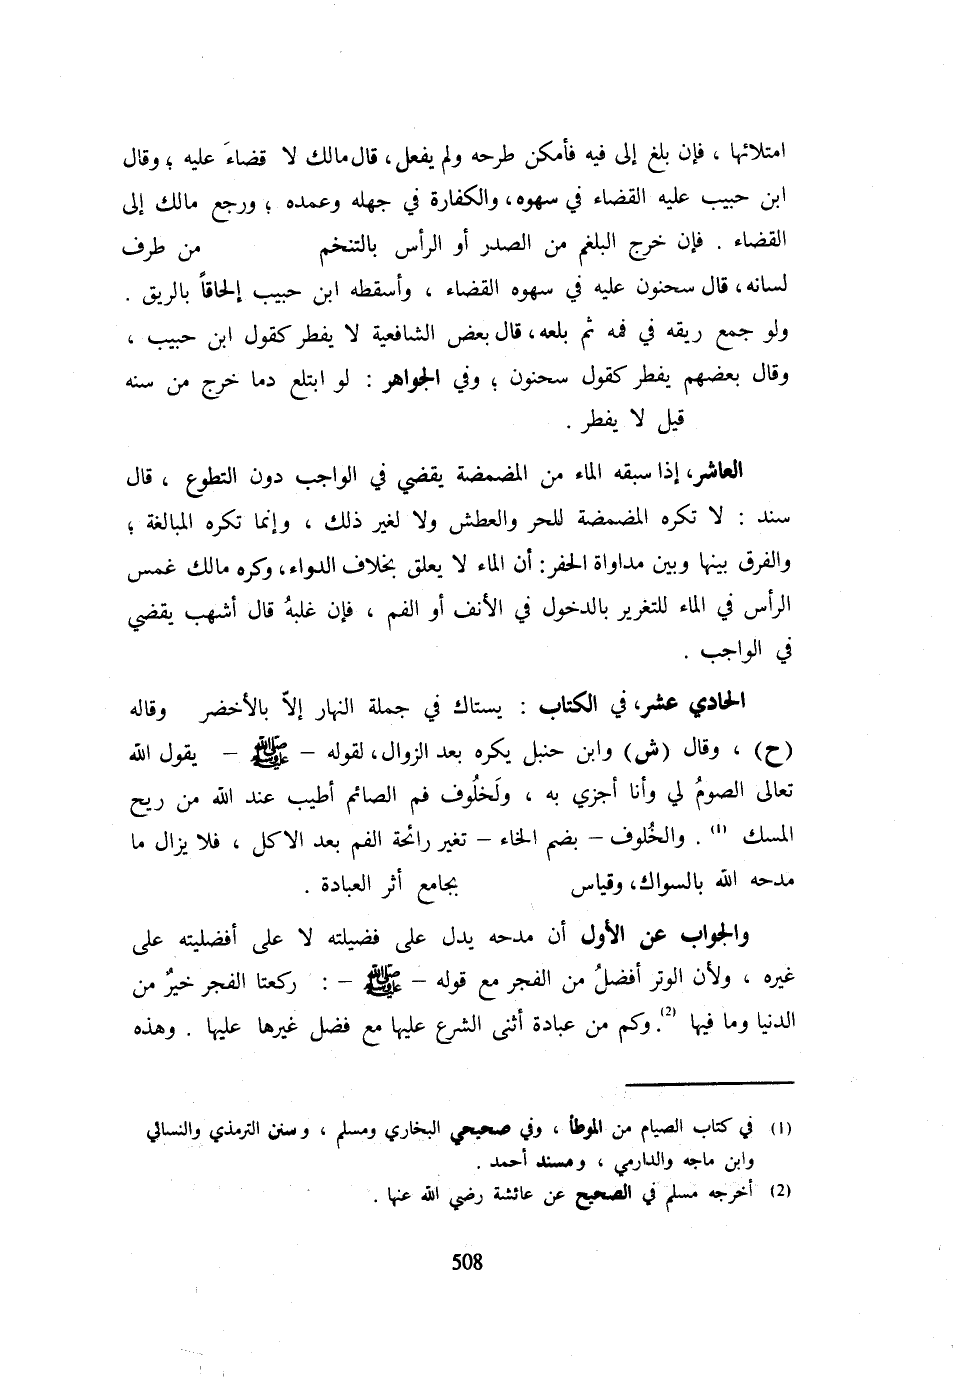 امتلائها ، فإن بلغ إلى فيه فأمكن طرحه ولم يفعل، قال مالك لا قضاءَ عليه ؛ وقال
ابن حبيب عليه القضاء في سهوه، والكفارة في جهله وعمده ؛ ورجع مالك إلى
القضاء . فإن خرج البلغم من الصدر أو الرأس بالتنخم من طرف
لسانه، قال سحنون عليه في سهوه القضاء ، وأسقطه ابن حبيب إلحاقاً بالريق .
ولو جمع ريقه في فمه ثم بلعه، قال بعض الشافعية لا يفطر كقول ابن حبيب ،
وقال بعضهم يفطر كقول سحنون ؛ وفي الجواهر : لو ابتلع دما خرج من سنه
قيل لا يفطر .
العاشر، إذا سبقه الماء من المضمضة يقضي في الواجب دون التطوع ، قال
سند : لا تكره المضمضة للحر والعطش ولا لغير ذلك ، وإنما تكره المبالغة ؛
والفرق بينها وبين مداواة الحفر: أن الماء لا يعلق بخلاف الدواء، وكره مالك غمس
الرأس في الماء للتغرير بالدخول في الأنف أو الفم ، فإن غلبهُ قال أشهب يقضي
في الواجب .
الحادي عشر، في الكتاب : يستاك في جملة النهار إلاّ بالأخضر وقاله
(ح) ، وقال (ش) وابن حنبل يكره بعد الزوال، لقوله – ﷺ – يقول الله
تعالى الصومُ لي وأنا أجزي به ، ولَخلُوف فم الصائم أطيب عند الله من ريح
المسك (1) . والخُلوف – بضم الخاء – تغير رائحة الفم بعد الاكل ، فلا يزال ما
مدحه الله بالسواك، وقياس بجامع أثر العبادة .
والجواب عن الأول أن مدحه يدل على فضيلته لا على أفضليته على
غيره ، ولأن الوتر أفضلُ من الفجر مع قوله – ﷺ – : ركعتا الفجر خيرٌ من
الدنيا وما فيها (2). وكم من عبادة أثنى الشرع عليها مع فضل غيرها عليها . وهذه
(1) في كتاب الصيام من الموطأ ، وفي صحيحي البخاري ومسلم ، وسنن الترمذي والنسائي
وابن ماجه والدارمي ، ومسند أحمد .
(2) أخرجه مسلم في الصحيح عن عائشة رضي الله عنها .
508